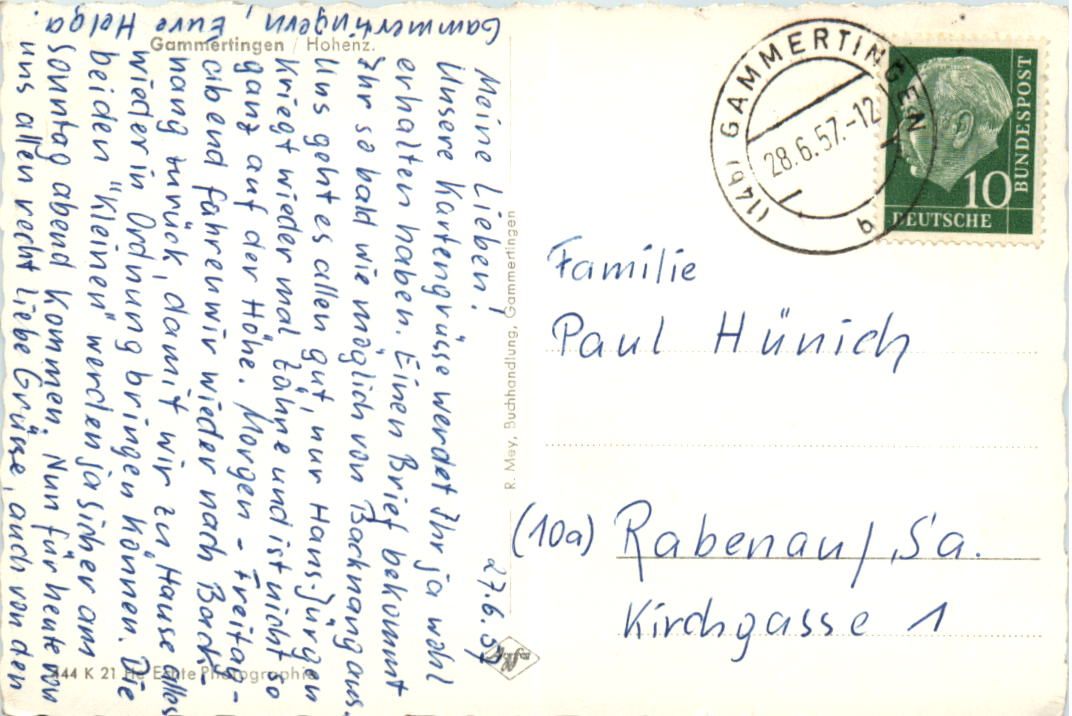 Gammertingen / Hohenz.
27.6.57
Meine Lieben!
Unsere Kartengrüsse werdet Ihr ja wohl
erhalten haben. Einen Brief bekommt
Ihr so bald wie möglich von Backnang aus.
Uns geht es allen gut, nur Hans-Jürgen
kriegt wieder mal Zähne und ist nicht so
ganz auf der Höhe. Morgen - Freitag -
abend fahren wir wieder nach Back-
nang zurück, damit wir zu Hause alles
wieder in Ordnung bringen können. Die
beiden "Kleinen" werden ja sicher am
Sonntag abend kommen. Nun für heute von
uns allen recht liebe Grüsse, auch von den
Gammertingern, Eure Helga.
R. Mey, Buchhandlung, Gammertingen
444 K 21 He Echte Photographie
(14b) GAMMERTINGEN
28.6.57.-12
b
DEUTSCHE
BUNDESPOST
10
Familie
Paul Hünich
(10a) Rabenau/Sa.
Kirchgasse 1